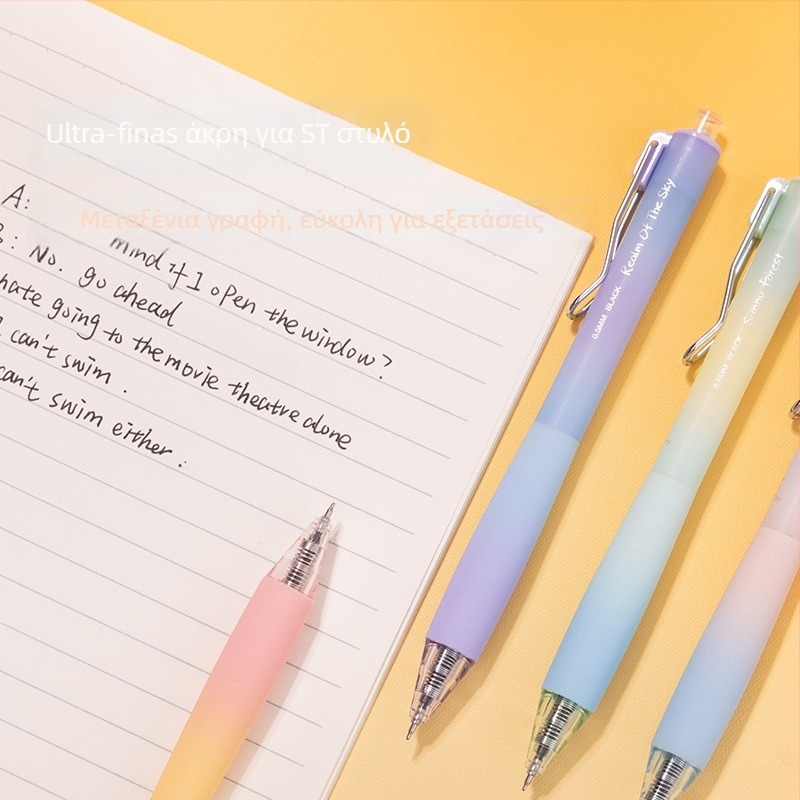 Ultra-finas άκρη για ST στυλό
Μεταξένια γραφή, εύκολη για εξετάσεις
A:
mind if I open the window?
B: No. go ahead
hate going to the movie theatre alone
can't swim.
can't swim either.
0.5MM BLACK Realm Of The Sky
0.5MM BLACK Sunny Forest